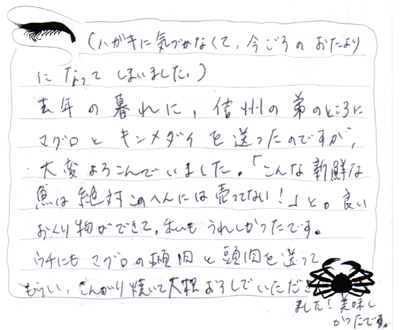 (ハガキに気づかなくて、今ごろのおたより
になってしまいました。)
去年の暮れに、信州の弟のところに
マグロとキンメダイを送ったのですが、
大変よろこんでいました。「こんな新鮮な
魚は絶対このへんには売ってない!」と。良い
おくり物ができて、私もうれしかったです。
ウチにもマグロの頬肉と頭肉を送って
もらい、こんがり焼いて大根おろしでいただき
ました!美味し
かったです。